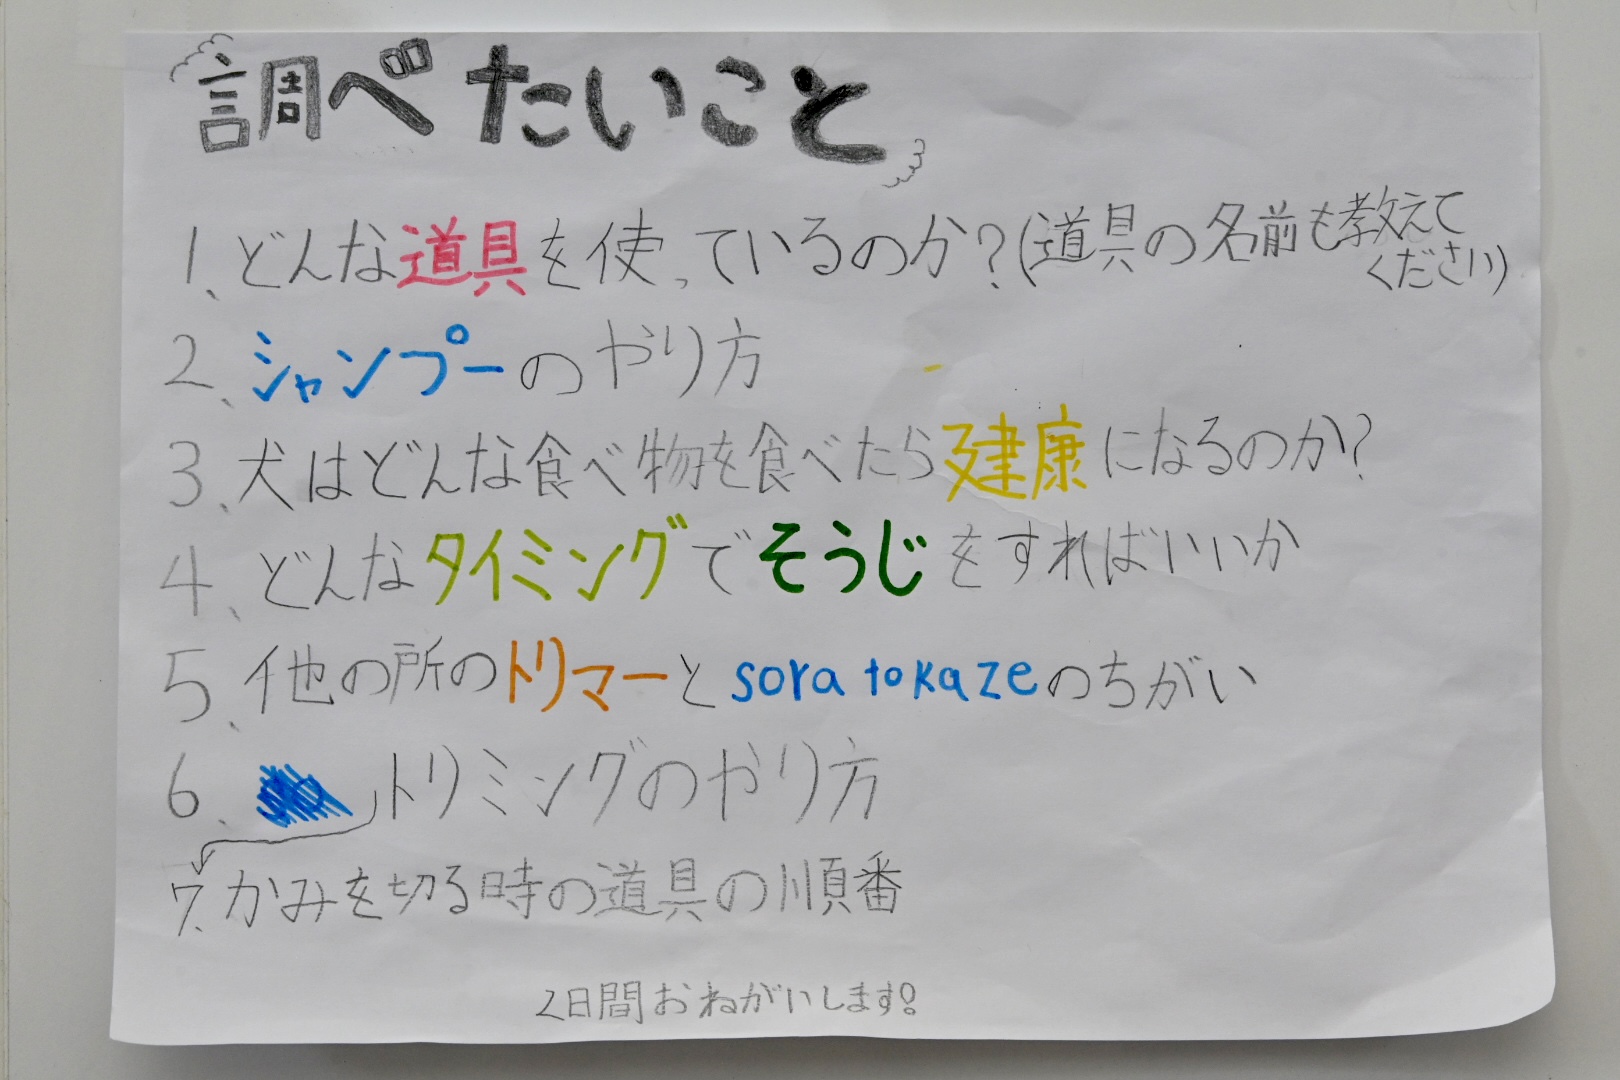 調べたいこと
1、どんな道具を使っているのか?(道具の名前も教えて
ください)
2、シャンプーのやり方
3、犬はどんな食べ物を食べたら健康になるのか?
4、どんなタイミングでそうじをすればいいか
5、他の所のトリマーとsora tokazeのちがい
6、トリミングのやり方
7、かみを切る時の道具の順番
2日間おねがいします!